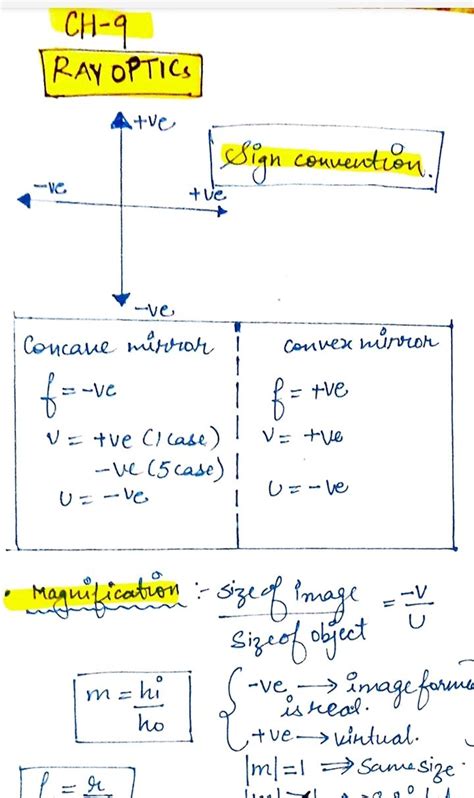 CH-9
RAY OPTICS
+ve
Sign convention.
-ve
+ve
-ve
Concave mirror
convex mirror
f = -ve
f = +ve
v = +ve (1 case)
v = +ve
-ve (5 case)
u = -ve
u = -ve
• Magnification :- size of image / size of object = -v/u
m = hi/ho
-ve → image forme
is real.
+ve → virtual.
|m|=1 ⇒ Same size.
f = r